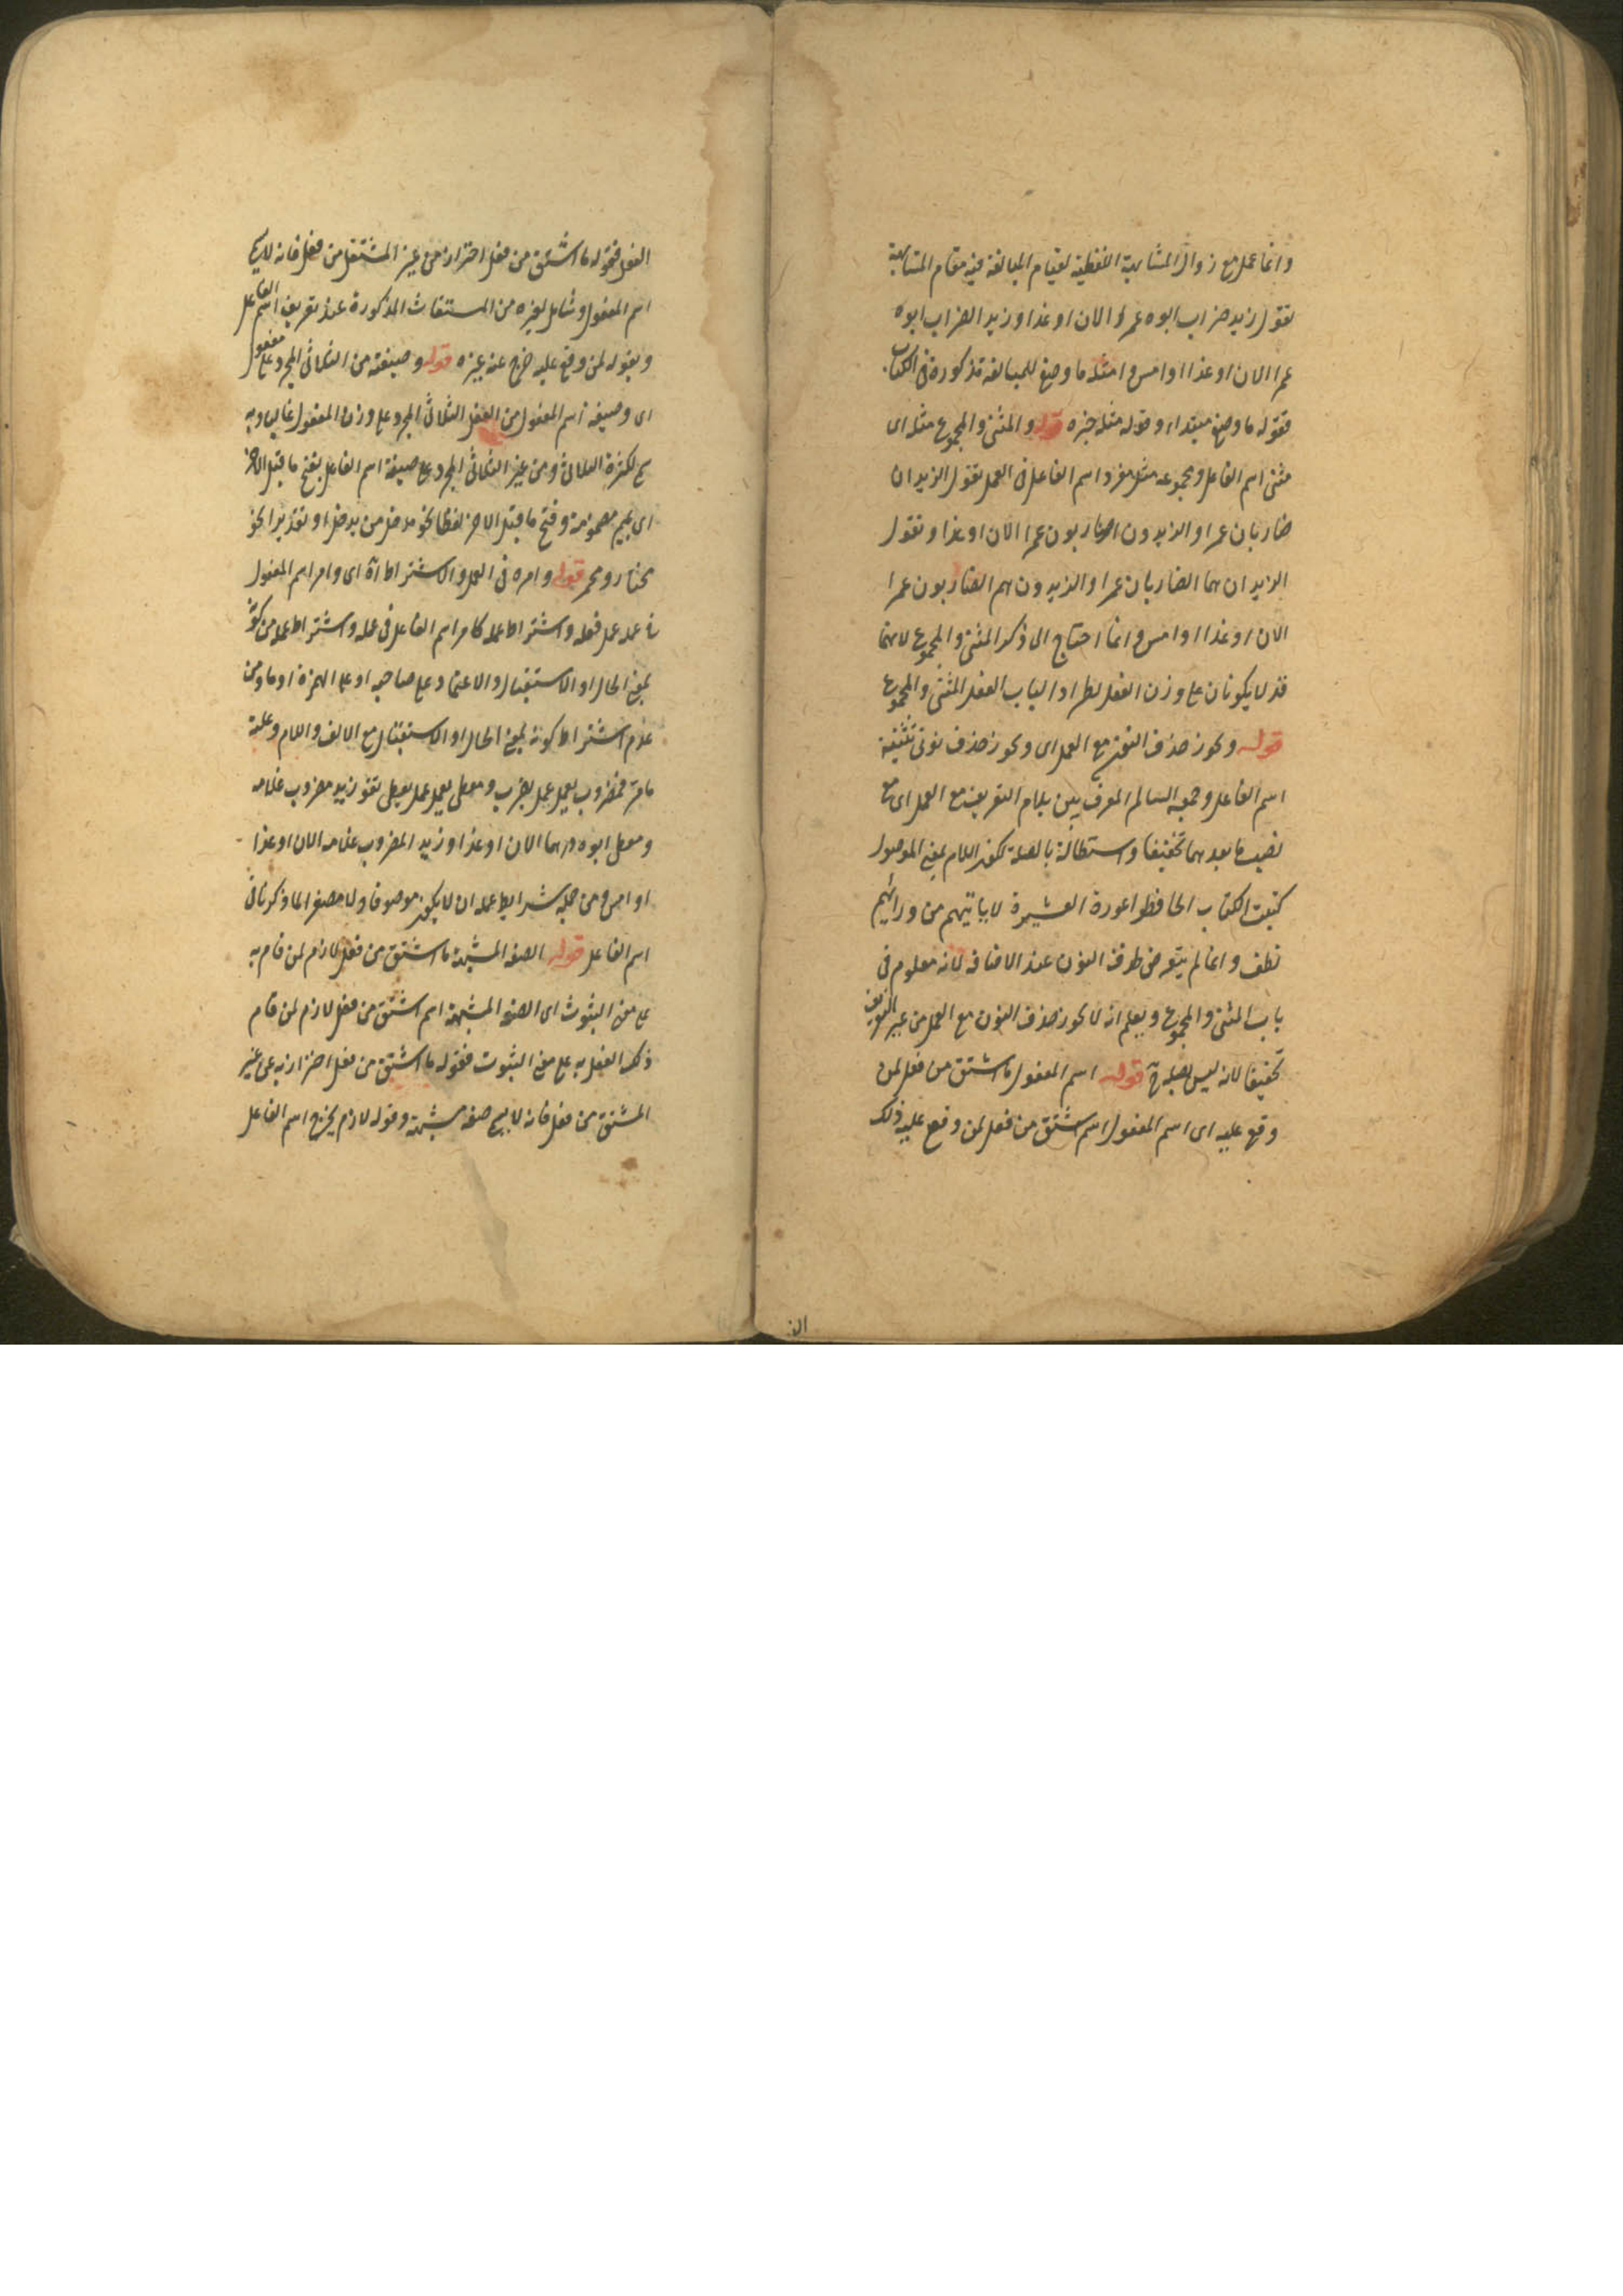 وانما عمل مع زوال المشابهة اللفظية لقيام المبالغة فيه مقام المشابهة
تقول زيد ضراب ابوه عمرا الان او غدا وزيد الضراب ابوه
عمرا الان او غدا او امس وامثلة ما وضع للمبالغة مذكورة فى الكتاب
فقوله ما وضع مبتداء وقوله مثله خبره قوله والمثنى والمجموع مثله اى
مثنى اسم الفاعل ومجموعه مثل مفرد اسم الفاعل فى العمل تقول الزيدان
ضاربان عمرا والزيدون ضاربون عمرا الان او غدا وتقول
الزيدان هما الضاربان عمرا والزيدون هم الضاربون عمرا
الان او غدا او امس وانما احتاج الى ذكر المثنى والمجموع لانهما
قد لا يكونان على وزن الفعل لطرد الباب الفعل المثنى والمجموع
قوله ويجوز حذف النون مع العمل اى ويجوز حذف نونى تثنية
اسم الفاعل وجمعه السالم المعرفين بلام التعريف مع العمل اى مع
نصب ما بعدهما تخفيفا واستطالة بالصلة لكون اللام بمعنى الموصول
كبيت الكتاب الحافظوا عورة العشيرة لا ياتيهم من ورائهم
نطف وانما لم يتعرض لحذف النون عند الاضافة لانه معلوم فى
باب المثنى والمجموع ويعلم انه لا يجوز حذف النون مع العمل من غير التعريف
تخفيفا لانه ليس بصلة قوله اسم المفعول ما اشتق من فعل لمن
وقع عليه اى اسم المفعول اسم اشتق من فعل لمن وقع عليه ذلك
الفعل فقوله ما اشتق من فعل احتراز من غير المشتق من فعل فانه لا يسمى
اسم المفعول وشامل لغيره من المشتقات المذكورة عند تعريف اسم الفاعل
وبقوله لمن وقع عليه خرج عنه غيره قوله وصيغته من الثلاثى المجرد على مفعول
اى وصيغة اسم المفعول من الفعل الثلاثى المجرد على وزن المفعول غالبا وبه
سمى لكثرة الثلاثى ومن غير الثلاثى المجرد على صيغة اسم الفاعل بفتح ما قبل الاخر
اى بميم مضمومة وفتح ما قبل الاخر لفظا نحو مدخل من يدخل او تقديرا نحو
مختار ومحمر قوله وامره فى العمل والاشتراط اه اى وامر اسم المفعول
فى عمله عمل فعله واشتراط عمله كامر اسم الفاعل فى عمله واشتراط عمله من كونه
بمعنى الحال او الاستقبال والاعتماد على صاحبه او على الهمزة او ما ومن
عدم اشتراط كونه بمعنى الحال او الاستقبال مع الالف واللام وعلته
ما مر فمضروب يعمل عمل يضرب ومعطى يعمل عمل يعطى تقول زيد مضروب غلامه
ومعطى ابوه درهما الان او غدا وزيد المضروب غلامه الان او غدا
او امس ومن جملة شرايط عمله ان لا يكون موصوفا ولا مصغرا لما ذكرنا فى
اسم الفاعل قوله الصفة المشبهة ما اشتق من فعل لازم لمن قام به
على معنى الثبوت اى الصفة المشبهة اسم اشتق من فعل لازم لمن قام
ذلك الفعل به على معنى الثبوت فقوله ما اشتق من فعل احتراز به عن غير
المشتق من فعل فانه لا يسمى صفة مشبهة وقوله لازم يخرج اسم الفاعل